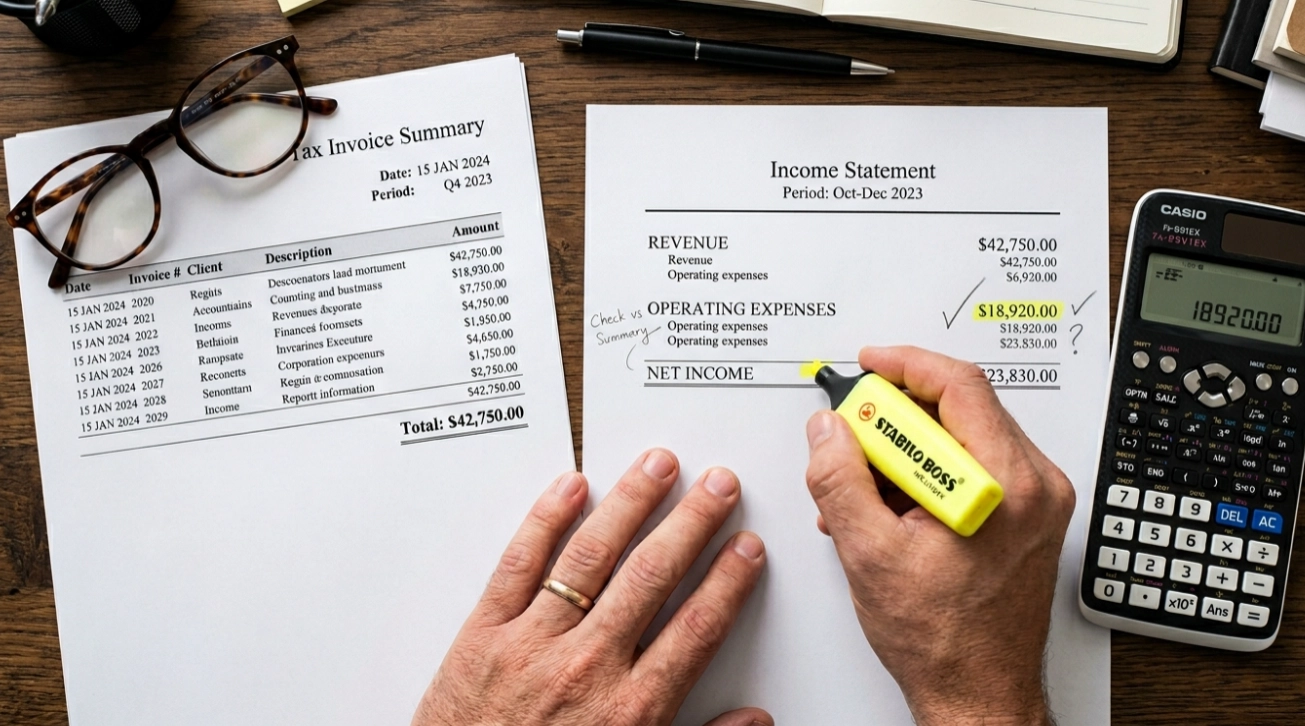 Tax Invoice Summary
Date: 15 JAN 2024
Period: Q4 2023
Date Invoice # Client Description Amount
15 JAN 2024 2020 Regints Descoenators laad mortument $42,750.00
15 JAN 2024 2021 Accountains Counting and bustmass $18,930.00
15 JAN 2024 2022 Incorns Revenues &xporate $7,750.00
15 JAN 2024 2023 Bethaioin Finances foomsets $4,750.00
15 JAN 2024 2026 Raropsate Invcarines Executure $1,950.00
15 JAN 2024 2027 Reconerts Corporation expcenurs $4,650.00
15 JAN 2024 2028 Senonttarn Reguin & comnosation $1,750.00
15 JAN 2024 2029 Income Reportt information $2,750.00
$42,750.00
Total: $42,750.00
Income Statement
Period: Oct-Dec 2023
REVENUE $42,750.00
Revenue $42,750.00
Operating expenses $6,920.00
OPERATING EXPENSES $18,920.00
Operating expenses $18,920.00
Operating expenses $23.830.00
?
NET INCOME $23,830.00
Check vs
Summary
STABILO BOSS
CASIO
18920.00
OPTN
STO ENG ( )
7 8 9 DEL AC
4 5 6 × ÷
1 2 3 + −
0 . ×10 Ans =